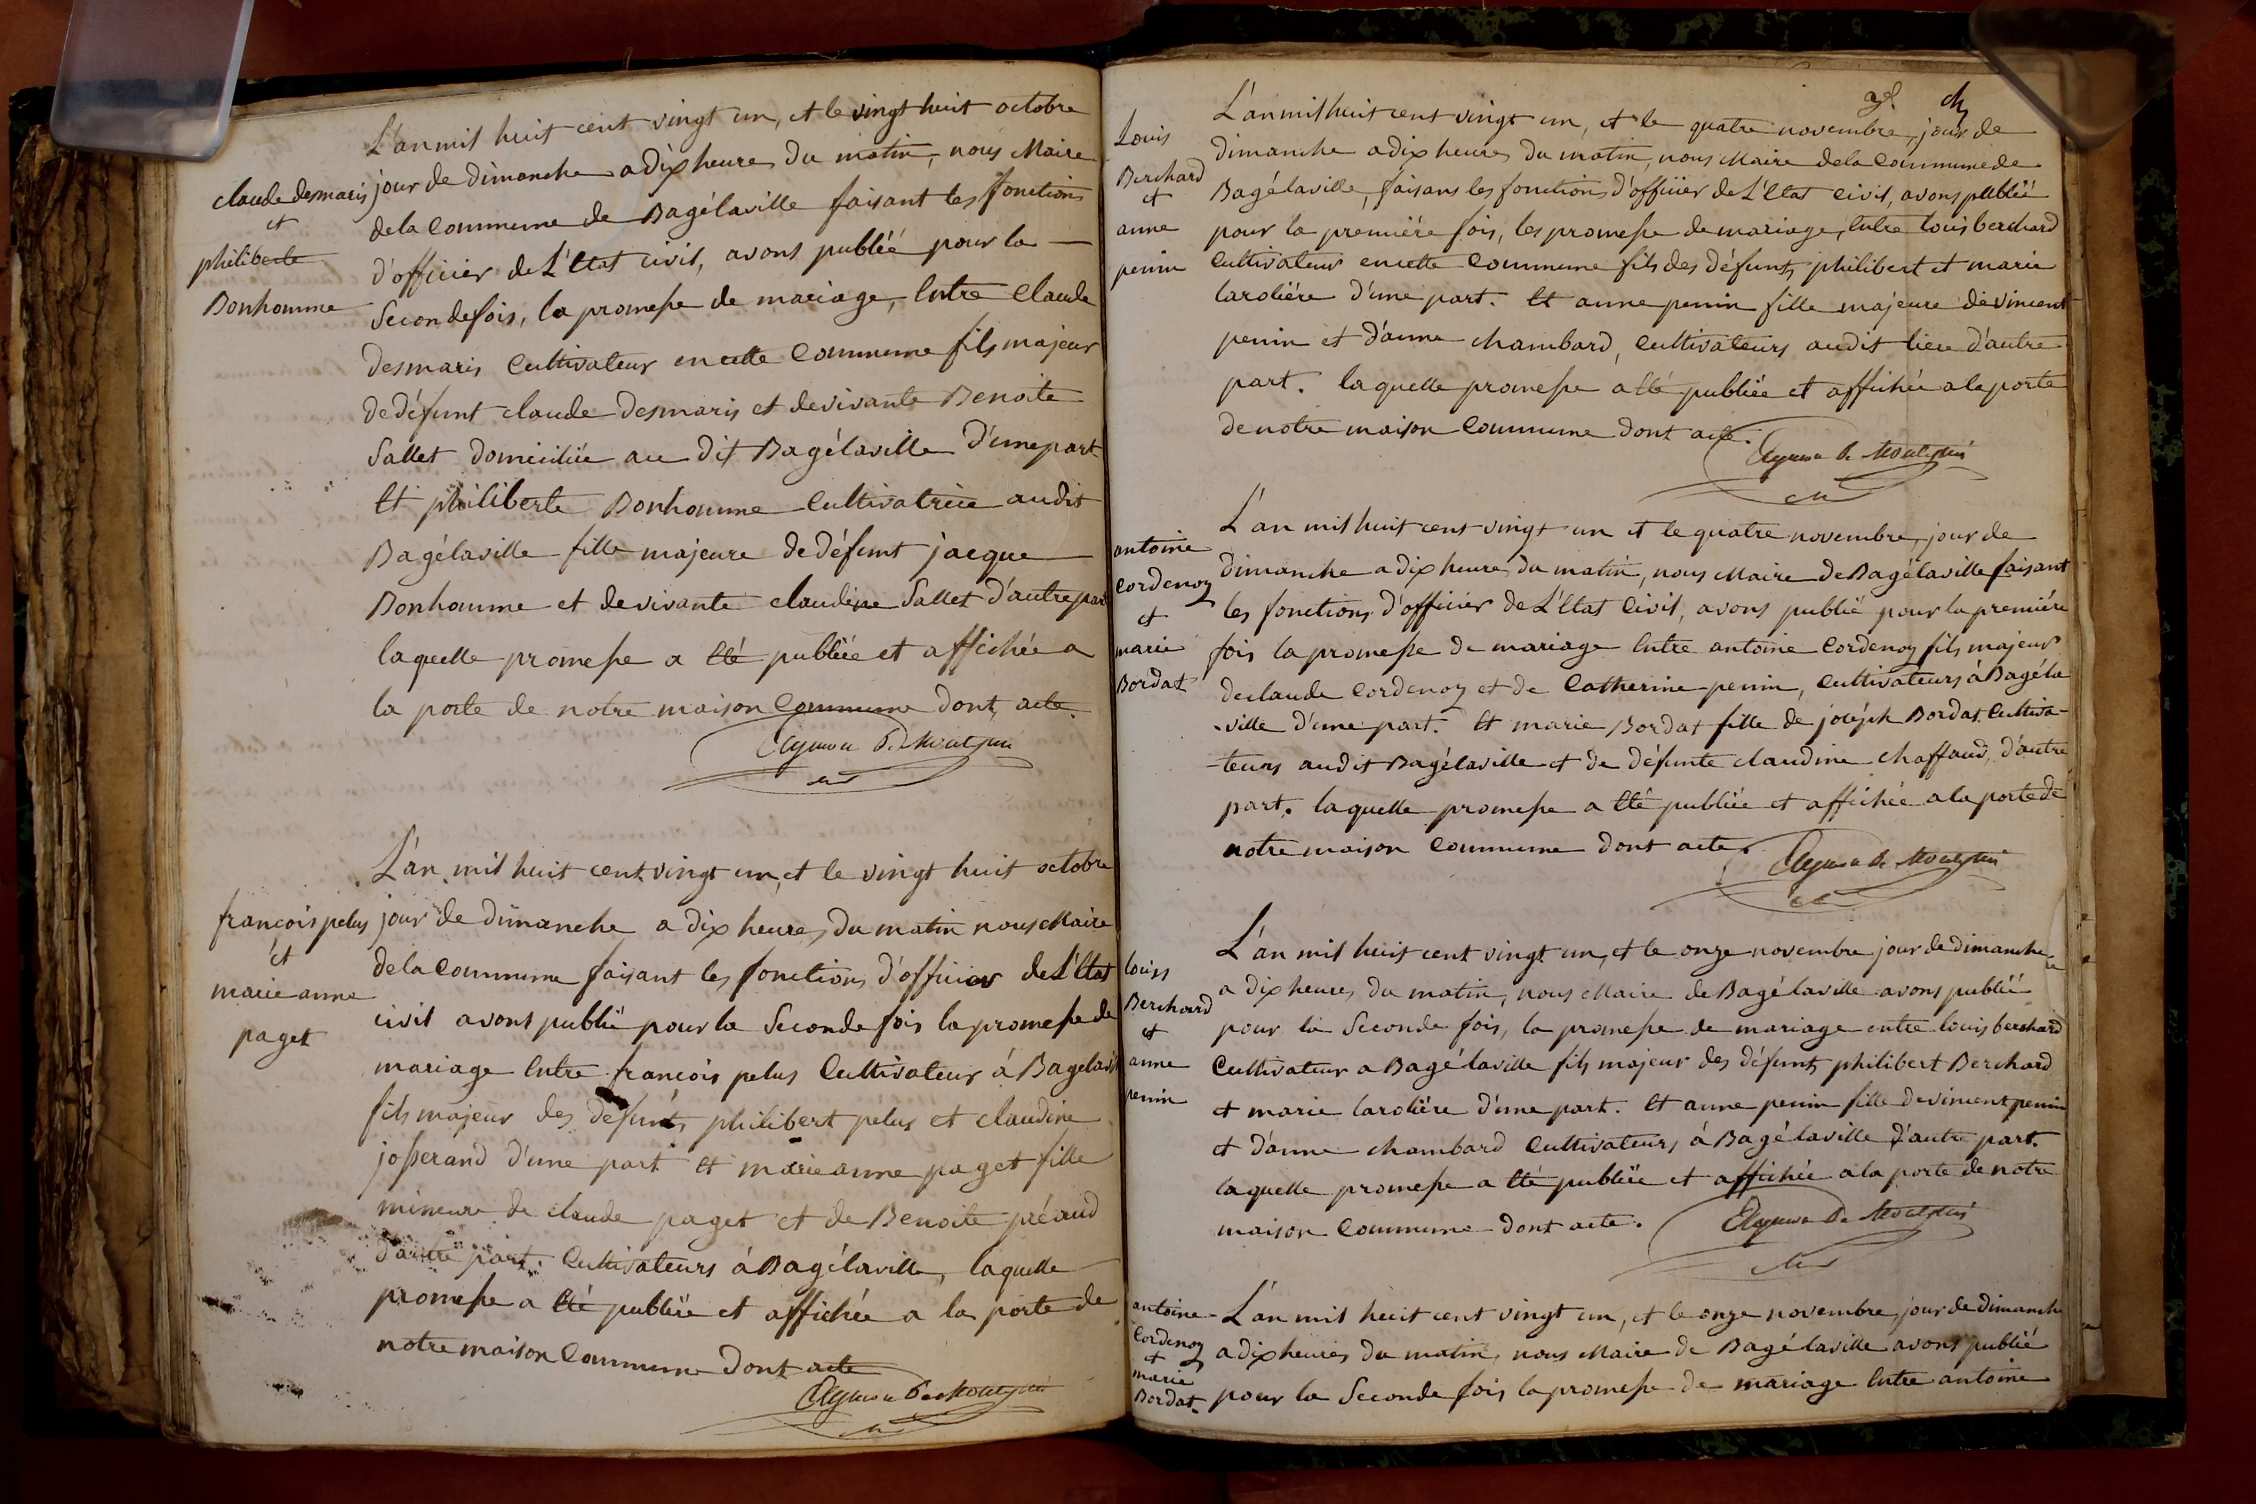 L'an mil huit cent vingt un, et le vingt huit octobre
jour de dimanche a dix heures du matin, nous Maire
de la Commune de Bagélaville faisant les fonctions
d'officier de L'Etat civil, avons publiée pour la
Seconde fois, la promesse de mariage, Entre Claude
Desmaris Cultivateur en cette Commune fils majeur
de défunt claude desmaris et de vivante Benoite
Sallet domiciliée au dit Bagélaville d'une part
Et philiberte Bonhomme Cultivatrice audit
Bagélaville fille majeure de défunt jacque
Bonhomme et de vivante claudine Sallet d'autre part
laquelle promesse a Eté publiée et affichée a
la porte de notre maison Commune dont acte.
claude desmaris
et
philiberte
Bonhomme
L'an mil huit cent vingt un, et le vingt huit octobre
jour de dimanche a dix heures du matin nous Maire
de la Commune faisant les fonctions d'officier de L'Etat
civil avons publié pour la Seconde fois la promesse de
mariage Entre françois pelus Cultivateur á Bagelavil
fils majeur des défunts philibert pelus et claudine
josserand d'une part et marie anne paget fille
mineure de claude paget et de Benoite préaud
d'autre part. Cultivateurs á Bagélaville, laquelle
promesse a Eté publiée et affichée a la porte de
notre maison Commune dont acte
françois pelus
et
marie anne
paget
L'an mil huit cent vingt un, et le quatre novembre, jour de
dimanche a dix heures du matin, nous Maire de la Commune de
Bagélaville, faisans les fonctions d'officier de L'Etat civil, avons publié
pour la première fois, les promesse de mariage, Entre louis berchard
Cultivateur en cette Commune fils des défunts philibert et marie
laroliére d'une part. Et anne penin fille majeure de vincent
penin et d'anne chambard, Cultivateurs audit lieu d'autre
part. laquelle promesse a Eté publiée et affichée a la porte
de notre maison Commune dont acte.
Louis
Berchard
et
anne
penin
L'an mil huit cent vingt un et le quatre novembre, jour de
dimanche a dix heures du matin, nous Maire de Bagélaville faisant
les fonctions d'officier de L'Etat Civil, avons publié pour la première
fois la promesse de mariage Entre antoine Cordenoy fils majeur
de claude Cordenoy et de Catherine penin, Cultivateurs á Bagéla
-ville d'une part. Et marie Bordat fille de joséph Bordat Cultiva-
-teurs audit Bagélaville et de défunte claudine chaffaud, d'autre
part. laquelle promesse a Eté publiée et affichée a la porte de
notre maison Commune dont acte.
antoine
Cordenoy
et
marie
Bordat
L'an mil huit cent vingt un, et le onze novembre jour de dimanche
a dix heures du matin, nous Maire de Bagélaville avons publié
pour la Seconde fois, la promesse de mariage entre louis berchard
Cultivateur a Bagélaville fils majeur des défunts philibert Berchard
et marie laroliére d'une part. Et anne penin fille de vincent penin
et d'anne chambard Cultivateurs á Bagélaville d'autre part.
laquelle promesse a Eté publiée et affichée a la porte de notre
maison Commune dont acte.
louis
Berchard
et
anne
penin
L'an mil huit cent vingt un, et le onze novembre, jour de dimanche
a dix heures du matin, nous Maire de Bagélaville avons publié
pour la Seconde fois la promesse de mariage Entre antoine
antoine
Cordenoy
et
marie
Bordat